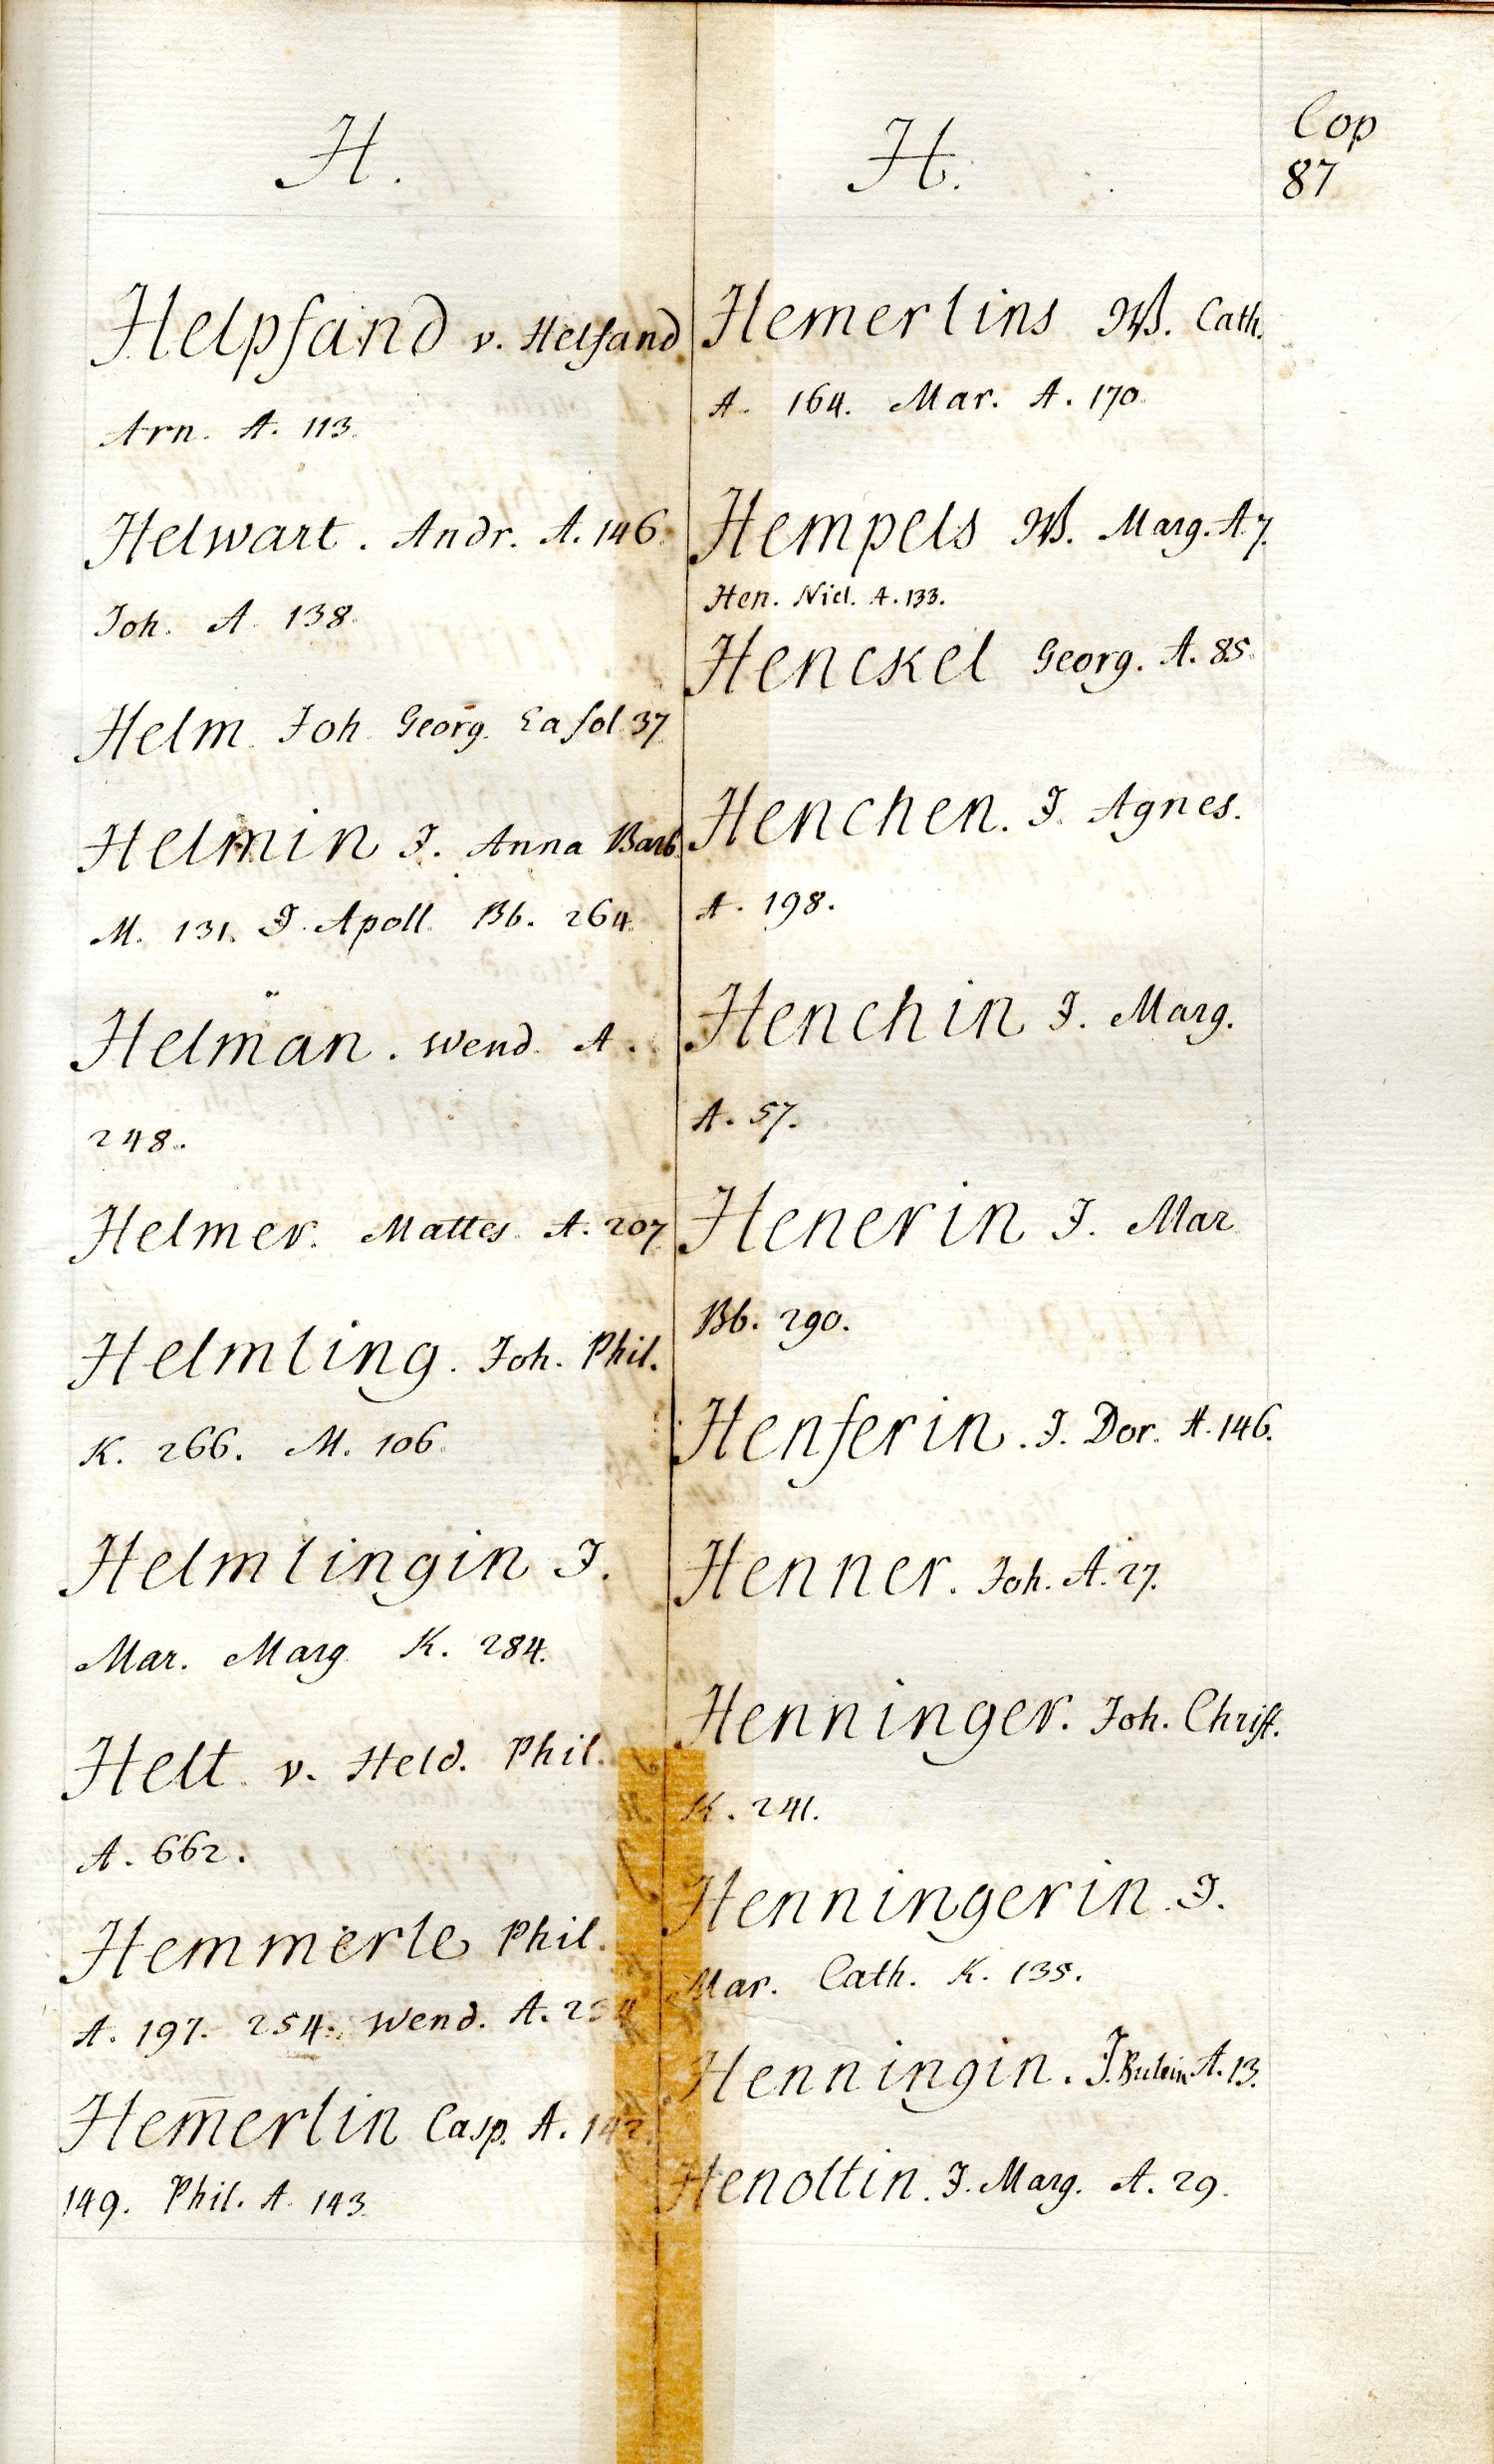 H.
Helpfand v. Helfand
Arn. A. 113.
Helwart. Andr. A. 146.
Joh. A. 138.
Helm. Joh. Georg. Ea fol. 37
Helmin J. Anna Barb.
M. 131. J. Apoll. Bb. 264.
Helm̈an. Wend. A.
248.
Helmer. Mattes. A. 207.
Helmling. Joh. Phil.
K. 266. M. 106.
Helmlingin J.
Mar. Marg. K. 284.
Helt. v. Held. Phil.
A. 662.
Hemmerle Phil.
A. 197. 254. Wend. A. 254
Hem̄erlin Casp. A. 142.
149. Phil. A. 143.
H.
Hemerlins W. Cath.
A. 164. Mar. A. 170.
Hempels W. Marg. A. 7.
Hen. Nicl. A. 133.
Henckel Georg. A. 85.
Henchen. J. Agnes.
A. 198.
Henchin J. Marg.
A. 57.
Henerin J. Mar.
Bb. 290.
Henferin. J. Dor. A. 146.
Henner. Joh. A. 27.
Henninger. Joh. Christ.
K. 241.
Henningerin. J.
Mar. Cath. K. 135.
Henningin. J. A. 13.
Henoltin. J. Marg. A. 29.
Cop
87